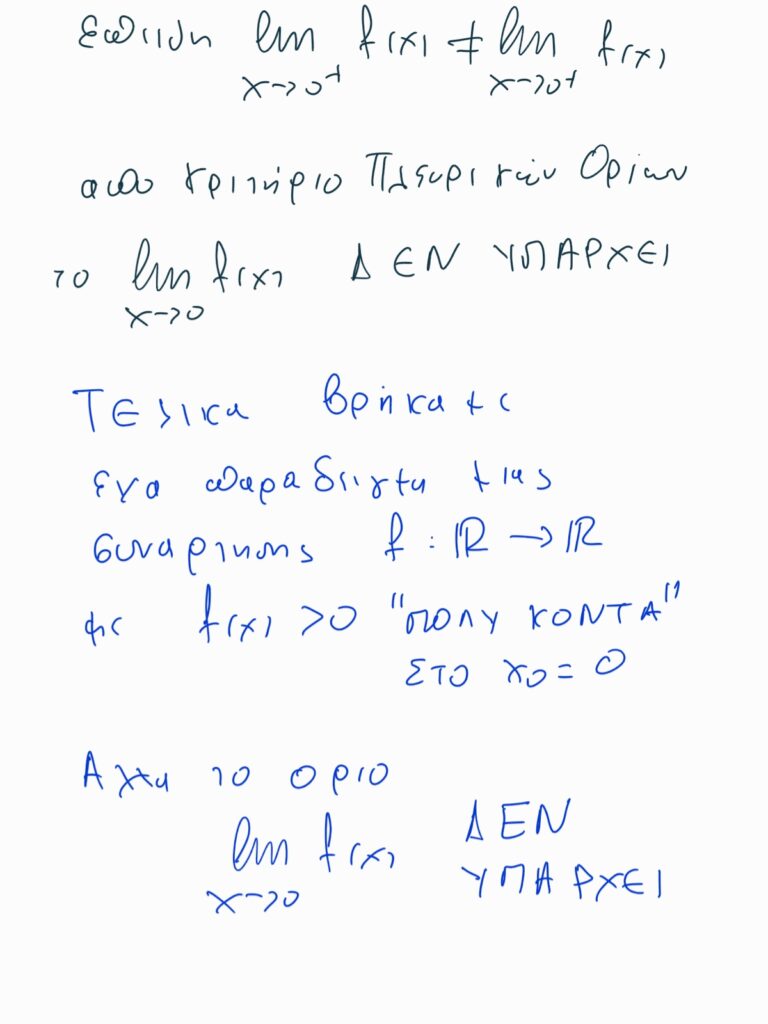 Επειδή lim f(x) ≠ lim f(x)
x→0⁺ x→0⁺
από κριτήριο Πλευρικών Ορίων
το lim f(x) ΔΕΝ ΥΠΑΡΧΕΙ
x→0
Τελικα βρήκαμε
ενα παραδειγμα μιας
συναρτησης f : ℝ → ℝ
με f(x) > 0 "ΠΟΛΥ ΚΟΝΤΑ"
ΣΤΟ x0 = 0
Αλλα το οριο
lim f(x) ΔΕΝ
x→0 ΥΠΑΡΧΕΙ